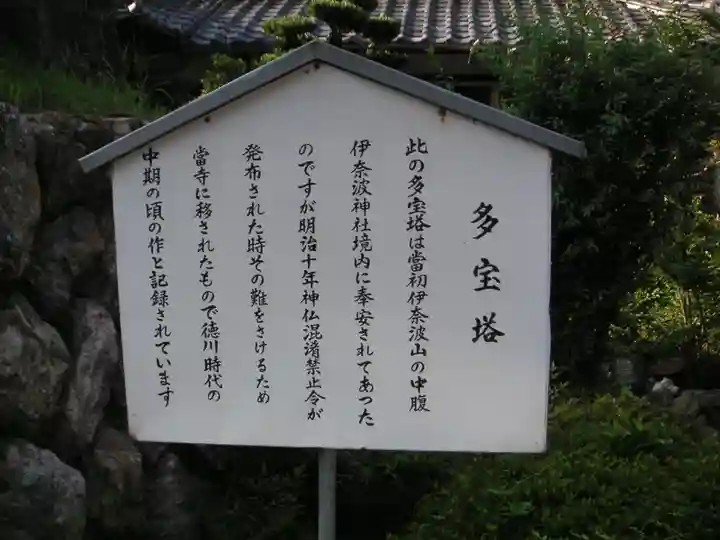 多宝塔
此の多宝塔は當初伊奈波山の中腹
伊奈波神社境内に奉安されてあった
のですが明治十年神仏混淆禁止令が
発布された時その難をさけるため
當寺に移されたもので徳川時代の
中期の頃の作と記録されています